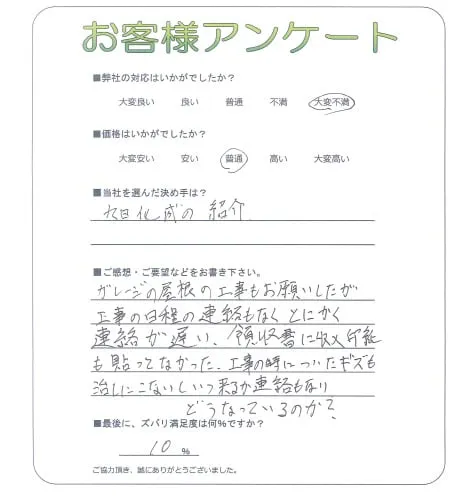 お客様アンケート
■弊社の対応はいかがでしたか?
大変良い 良い 普通 不満 大変不満
■価格はいかがでしたか?
大変安い 安い 普通 高い 大変高い
■当社を選んだ決め手は?
旭化成の 紹介
■ご感想・ご要望などをお書き下さい。
ガレージの屋根の工事もお願いしたが
工事の日程の連絡もなく とにかく
連絡が遅い、領収書に収入印紙
も貼ってなかった。工事の時についたキズも
治しにこないしいつ来るか連絡もなり
どうなっているのか?
■最後に、ズバリ満足度は何%ですか?
10 %
ご協力頂き、誠にありがとうございました。